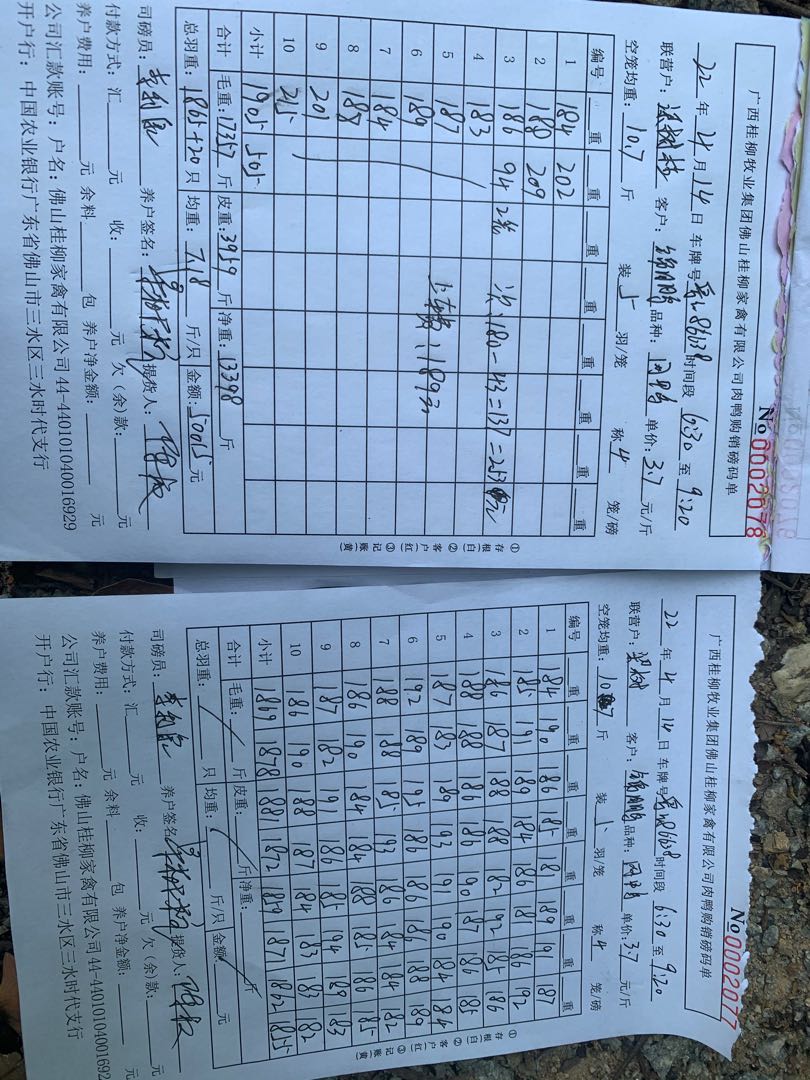 广西桂柳牧业集团佛山桂柳家禽有限公司肉鸭购销磅码单
No 0002078
22 年 4 月 14 日 车牌号 时间段 6:30 至 9:20
联营户: 客户: 品种: 单价: 3.7 元/斤
空笼均重: 10.7 斤 装 5 羽/笼 称 4 笼/磅
编号 重 重 重 重 重 重 重 重
1 184 202
2 188 209
3 186 94 2笼
4 183
5 187
6 189
7 184
8 187
9 201
10 215
小计 1905 505
180-43=137=253
合计 毛重: 17357 斤 皮重: 3959 斤 净重: 13398 斤
总羽重: 1865+20 只 均重: 7.18 斤/只 金额: 50015 元
司磅员: 养户签名: 提货人:
付款方式: 汇 元 收: 元 欠(余)款: 元
养户费用: 元 余料 包 养户净金额: 元
公司汇款账号: 户名: 佛山桂柳家禽有限公司 44-440101040016929
开户行: 中国农业银行广东省佛山市三水区三水时代支行
①存根(白) ②客户(红) ③记账(黄)
广西桂柳牧业集团佛山桂柳家禽有限公司肉鸭购销磅码单
No 0002077
22 年 4 月 14 日 车牌号 时间段 6:30 至 9:20
联营户: 客户: 品种: 单价: 3.7 元/斤
空笼均重: 斤 装 羽/笼 称 4 笼/磅
编号 重 重 重 重 重 重 重 重
1 184 190 186 185 181 189 191 187
2 185 191 189 184 186 181 186 192
3 186 187 188 188 182 192 185 186
4 188 188 186 186 190 187 186 185
5 187 183 189 193 191 190 184 184
6 192 189 195 186 186 186 188 189
7 188 188 185 193 186 184 184 182
8 186 190 184 184 188 185 186 185
9 187 182 191 186 185 194 189 183
10 186 190 188 187 184 183 183 182
小计 1869 1878 1881 1872 1859 1871 1862 1855
合计 毛重: 斤 皮重: 斤 净重: 斤
总羽重: 只 均重: 斤/只 金额: 元
司磅员: 养户签名: 提货人:
付款方式: 汇 元 收: 元 欠(余)款: 元
养户费用: 元 余料 包 养户净金额: 元
公司汇款账号: 户名: 佛山桂柳家禽有限公司 44-44010104001692
开户行: 中国农业银行广东省佛山市三水区三水时代支行
①存根(白) ②客户(红) ③记账(黄)